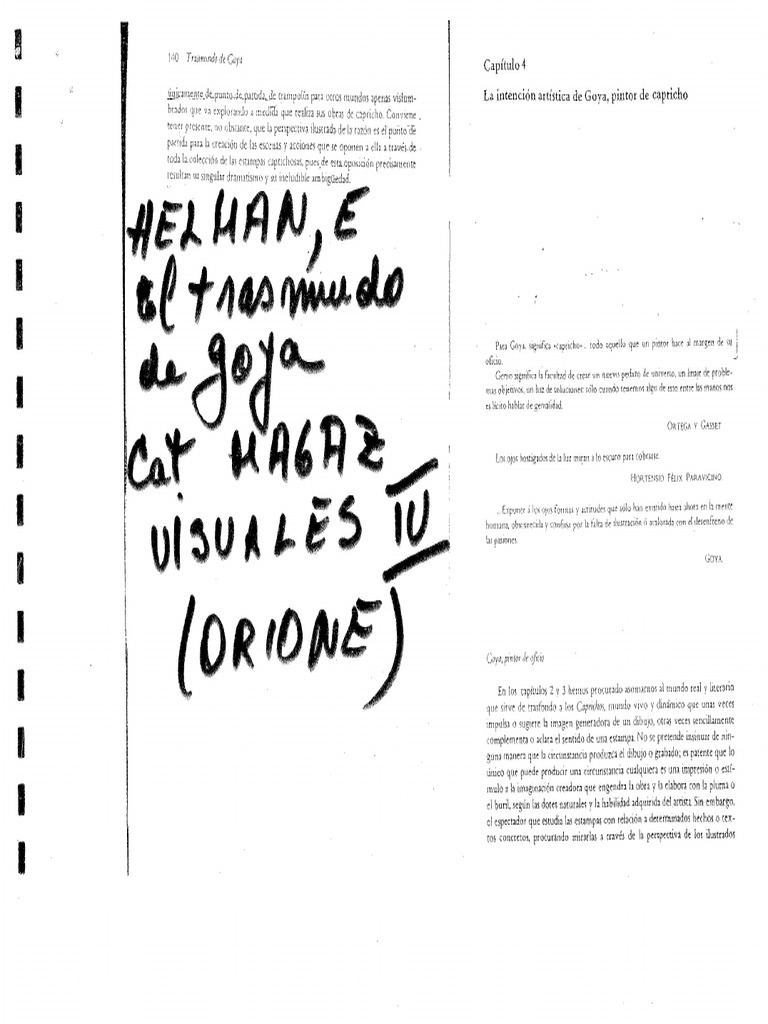 140 Trasmundo de Goya
únicamente de punto de partida, de trampolín para otros mundos apenas vislum-
brados que va explorando a medida que realiza sus obras de capricho. Conviene
tener presente, no obstante, que la perspectiva ilustrada de la razón es el punto de
partida para la creación de las escenas y acciones que se oponen a ella a través de
toda la colección de las estampas caprichosas, pues de esta oposición precisamente
resultan su singular dramatismo y su ineludible ambigüedad.
HELMAN, E
el trasmudo
de goya
Cat MAGAZ
VISUALES IV
(ORIONE)
Capítulo 4
La intención artística de Goya, pintor de capricho
Para Goya, significa «capricho»... todo aquello que un pintor hace al margen de su
oficio.
Genio significa la facultad de crear un nuevo pedazo de universo, un linaje de proble-
mas objetivos, un haz de soluciones: sólo cuando tenemos algo de esto entre las manos nos
es lícito hablar de genialidad.
ORTEGA Y GASSET
Los ojos hostigados de la luz miran a lo escuro para cobrarse.
HORTENSIO FÉLIX PARAVICINO
...Exponer á los ojos formas y actitudes que sólo han existido hasta ahora en la mente
humana, obscurecida y confusa por la falta de ilustración ó acalorada con el desenfreno de
las pasiones.
GOYA
Goya, pintor de oficio
En los capítulos 2 y 3 hemos procurado asomarnos al mundo real y literario
que sirve de trasfondo a los Caprichos, mundo vivo y dinámico que unas veces
impulsa o sugiere la imagen generadora de un dibujo, otras veces sencillamente
complementa o aclara el sentido de una estampa. No se pretende insinuar de nin-
guna manera que la circunstancia produzca el dibujo o grabado; es patente que lo
único que puede producir una circunstancia cualquiera es una impresión o estí-
mulo a la imaginación creadora que engendra la obra y la elabora con la pluma o
el buril, según las dotes naturales y la habilidad adquirida del artista. Sin embargo,
el espectador que estudia las estampas con relación a determinados hechos o tex-
tos concretos, procurando mirarlas a través de la perspectiva de los ilustrados